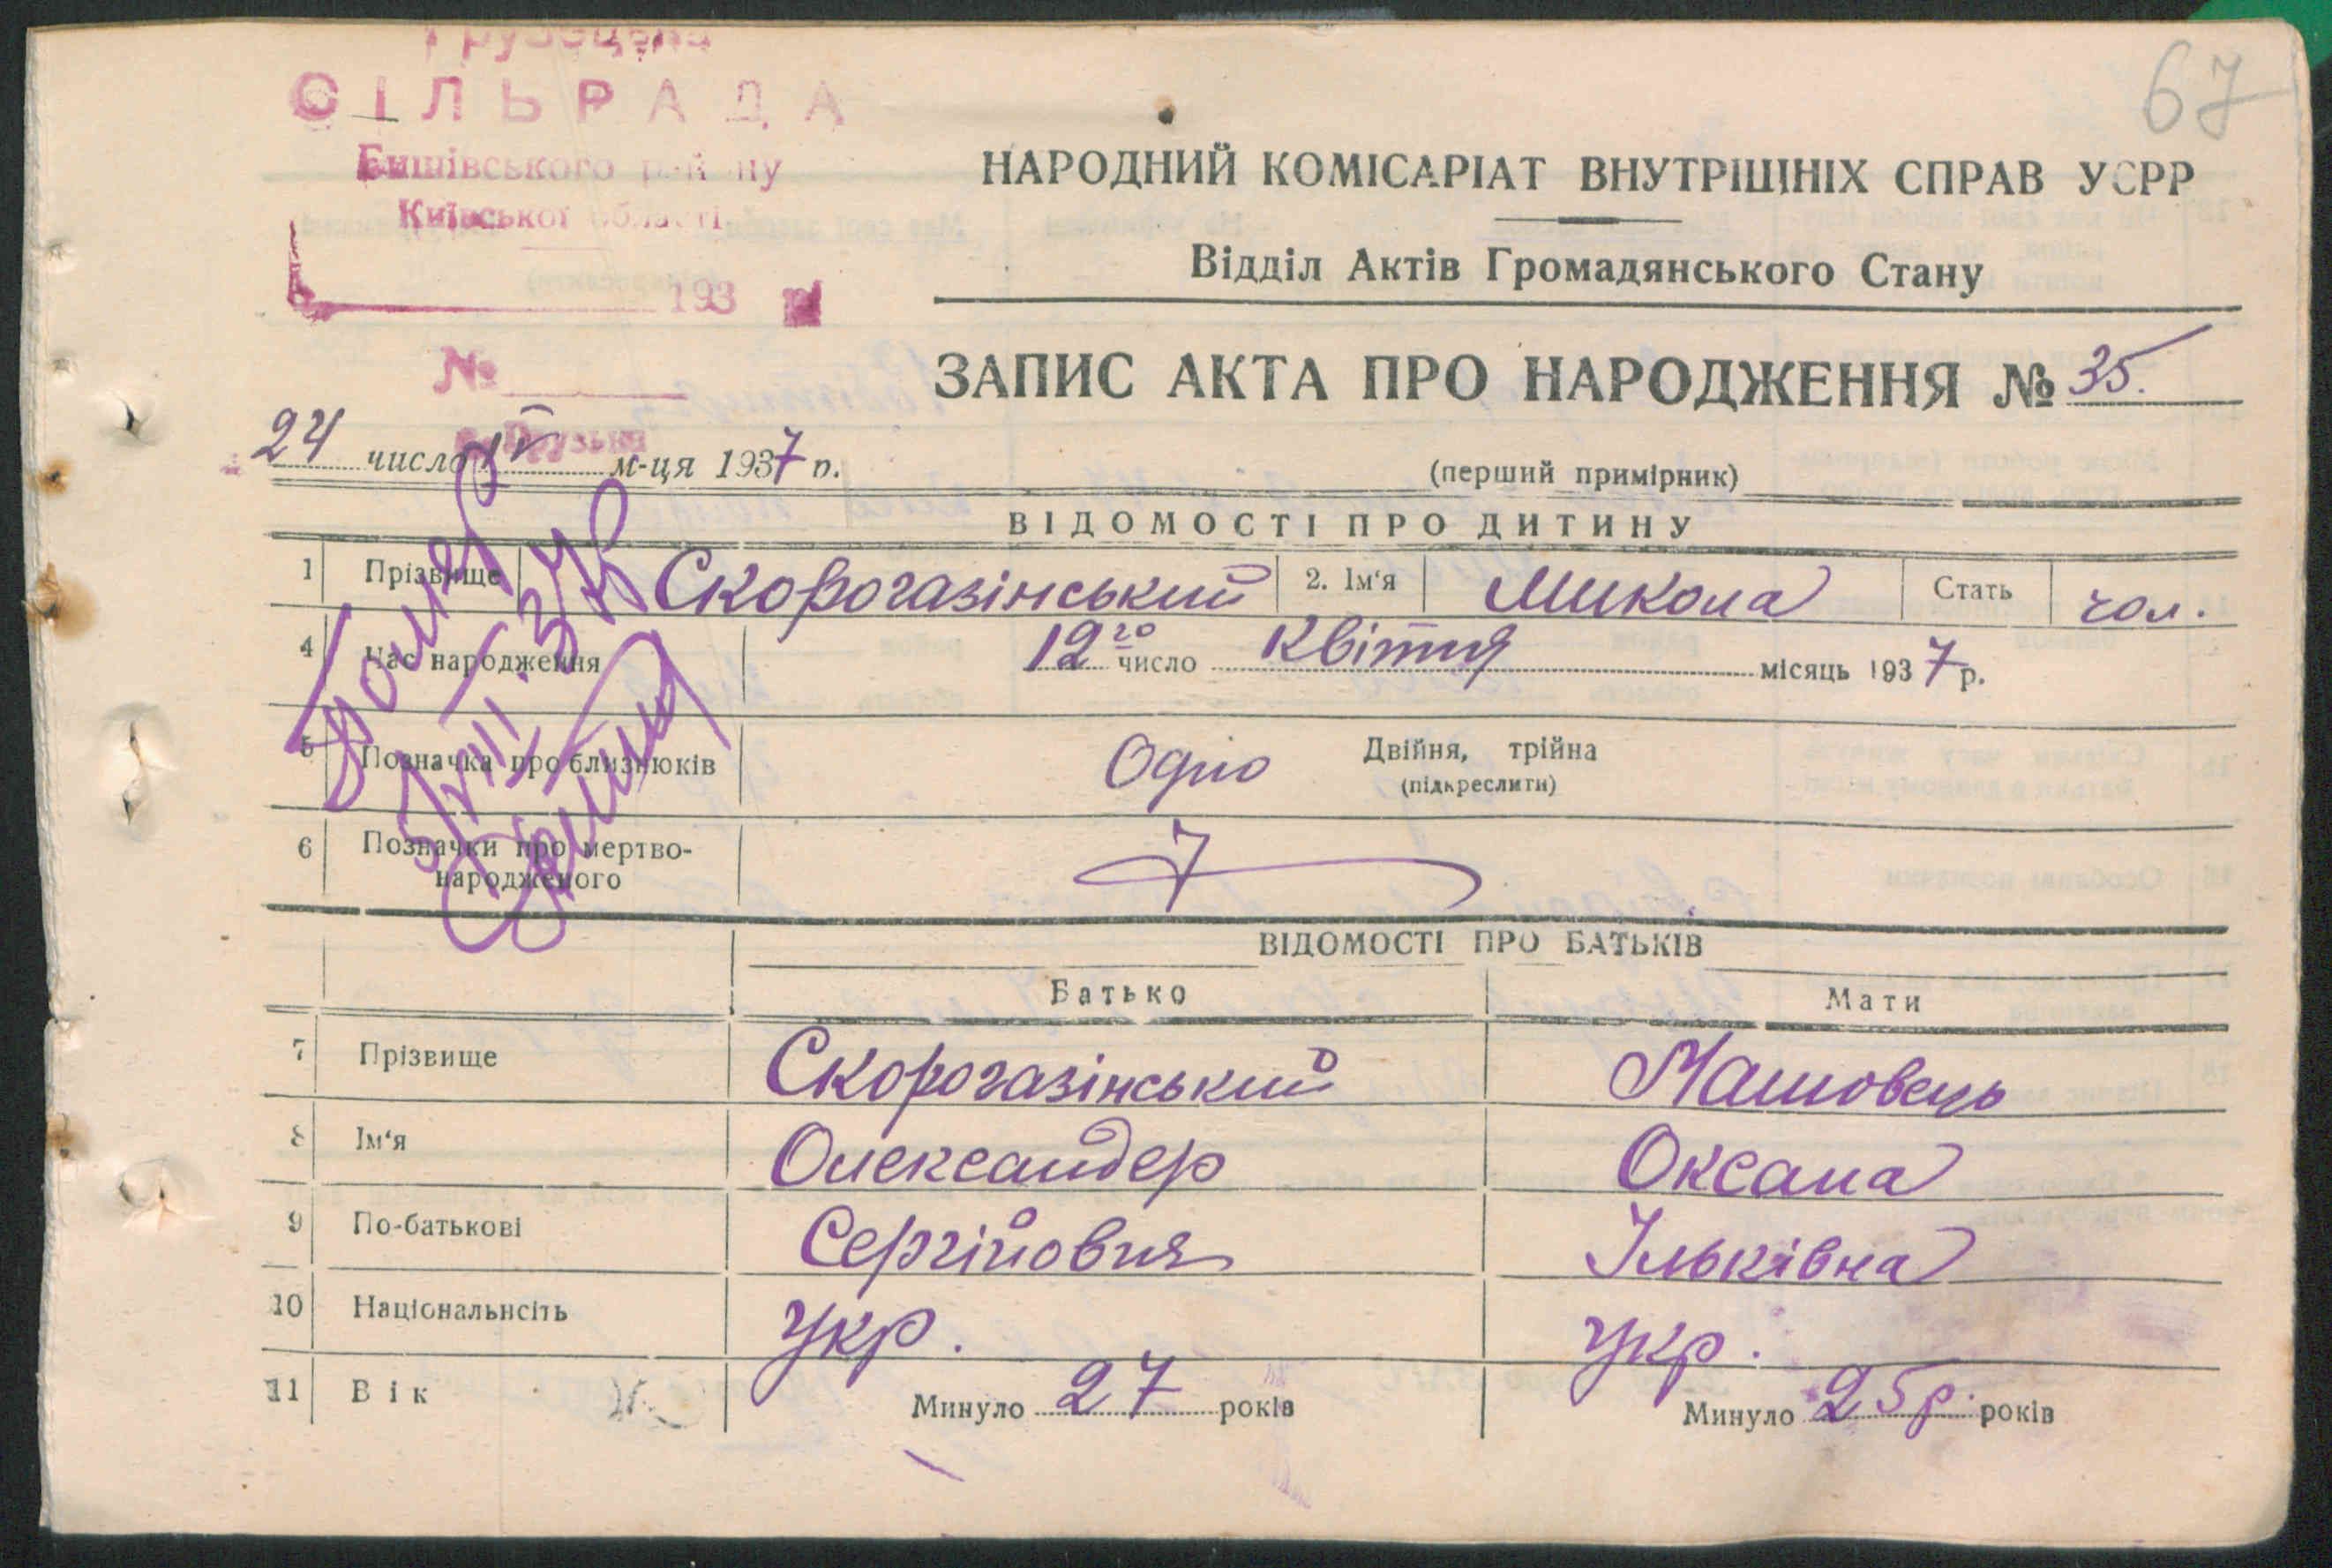 67
Грузецька
СІЛЬРАДА
Бишівського району
Київської області
193 р.
№
с. Грузьке
НАРОДНИЙ КОМІСАРІАТ ВНУТРІШНІХ СПРАВ УСРР
Відділ Актів Громадянського Стану
ЗАПИС АКТА ПРО НАРОДЖЕННЯ № 35.
24 число IV м-ця 1937 р.
(перший примірник)
ВІДОМОСТІ ПРО ДИТИНУ
1 Прізвище Скорогазінський 2. Ім'я Микола Стать чол.
4 Час народження 12го число Квітня місяць 1937 р.
5 Позначка про близнюків Одно Двійня, трійна
(підкреслити)
6 Позначки про мертво-
народженого
ВІДОМОСТІ ПРО БАТЬКІВ
Батько Мати
7 Прізвище Скорогазінський Машовець
8 Ім'я Олександер Оксана
9 По-батькові Сергійовия Ільківна
10 Національнсіть укр. укр.
11 Вік Минуло 27 років Минуло 25р. років